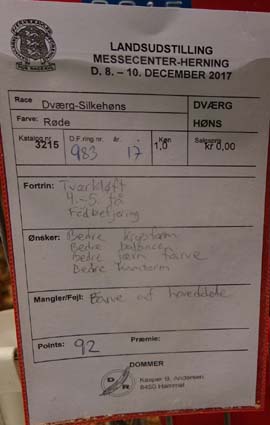 LANDSUDSTILLING
MESSECENTER-HERNING
D. 8. - 10. DECEMBER 2017
Race Dværg-Silkehøns
DVÆRG
Farve: Røde
HØNS
Katalog nr. D.F.ring nr. år. Køn Salgspris
3215 983 17 1,0 kr 0,00
Fortrin: Tværkløft
4.-5. tå
Fodbefjering
Ønsker: Bedre Kropsform
Bedre balancen
Bedre jævn farve
Bedre kamform
Mangler/Fejl: Farve af hoveddele
Points: 92 Præmie:
DOMMER
D R
Kasper B. Andersen
8450 Hammel